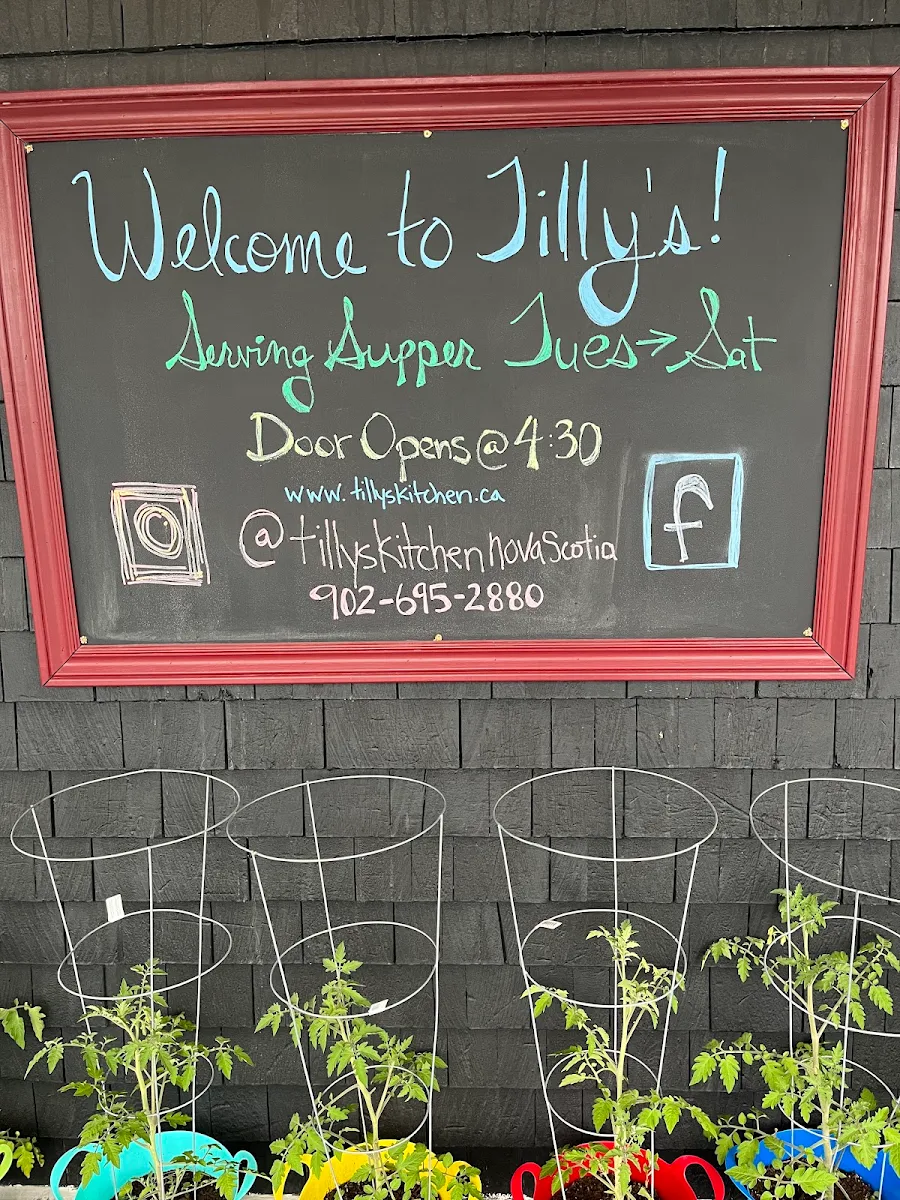 Welcome to Tilly's!
Serving Supper Tues→Sat
Door Opens @ 4:30
www.tillyskitchen.ca
@tillyskitchennovaScotia
f
902-695-2880